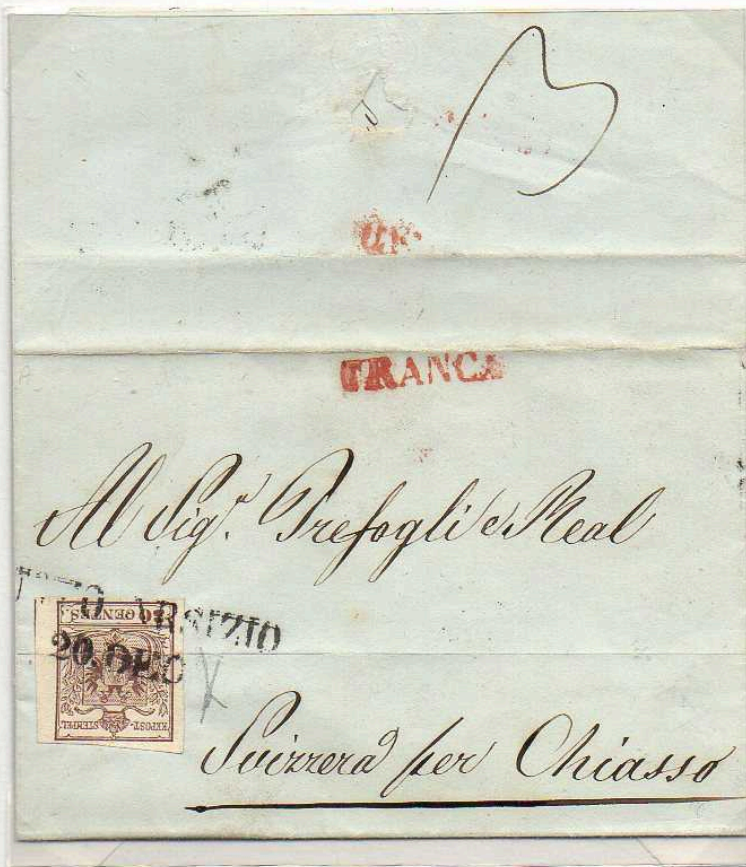 FRANCA
Al Sig.r Trefogli e Real
ARSIZIO
CENTES.
20. DEC
KKPOST-STEMPEL
Svizzera per Chiasso